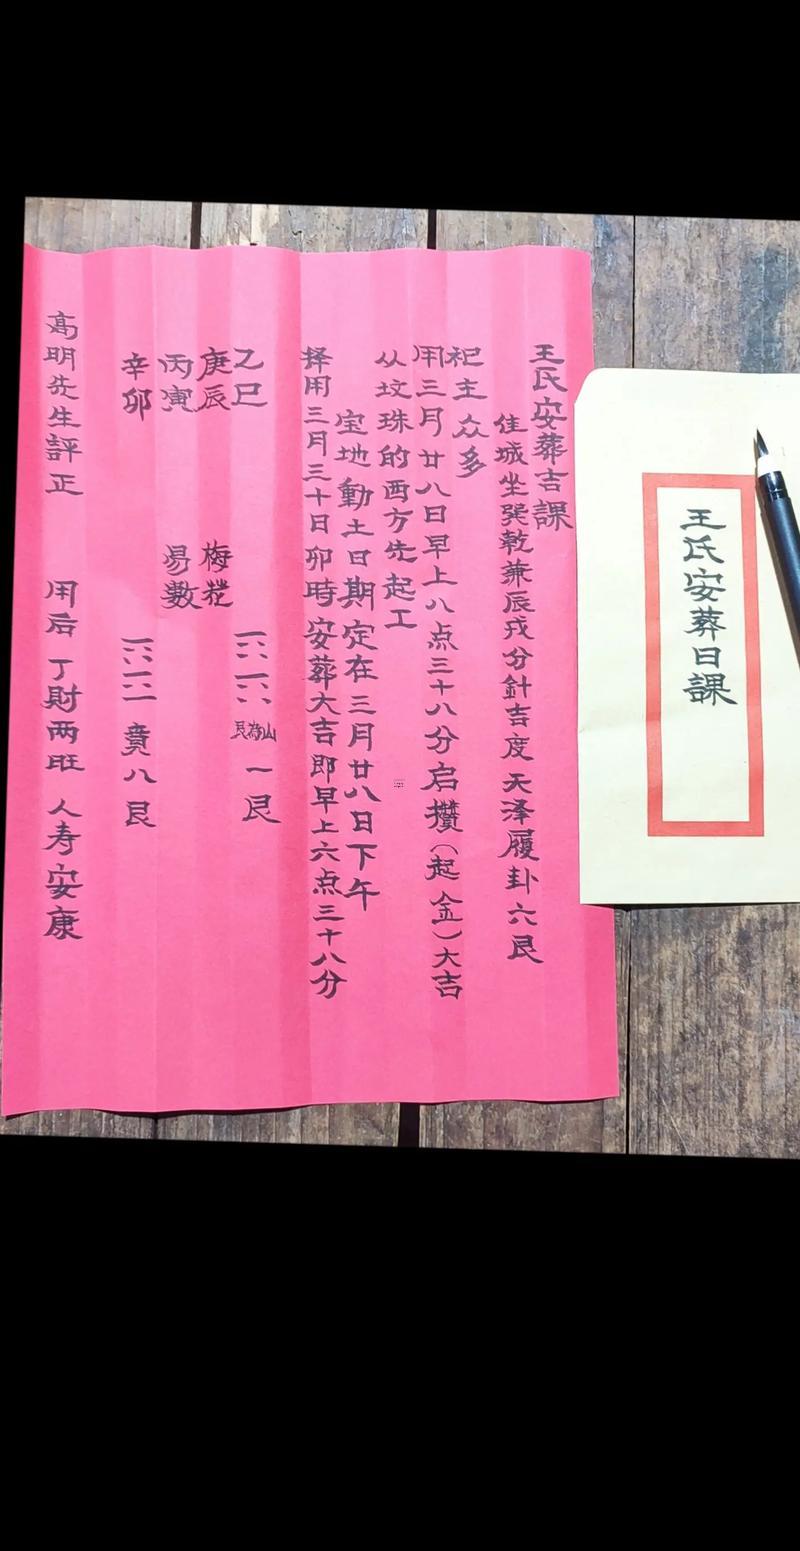 王氏安葬吉課
佳城坐巽乾兼辰戌分針吉度天泽履卦六艮
祀主众多
用三月廿八日早上八点三十八分启攢(起金)大吉
从坟珠的西方先起工
宝地動土日期定在三月廿八日下午
择用三月三十日卯時安葬大吉即早上六点三十八分
乙巳
庚辰
丙寅
辛卯
梅花
易數
艮為山
一艮
賁八艮
高明先生評正
用后丁財两旺人寿安康
王氏安葬日課